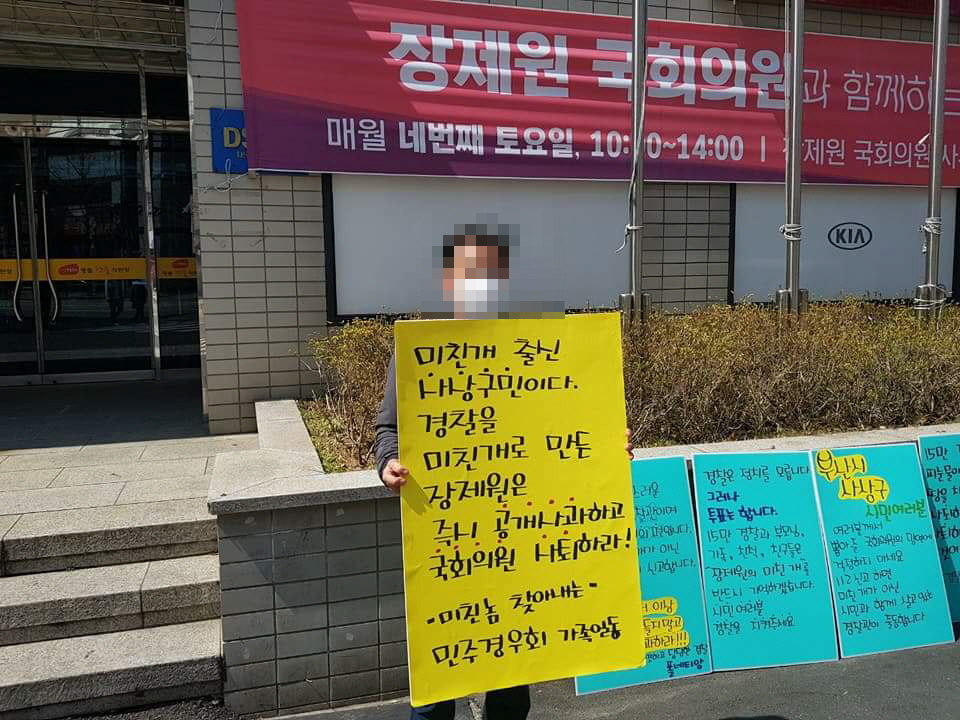 장제원 국회의원과 함께하는
매월 네번째 토요일, 10:00~14:00 | 장제원 국회의원 사
DS
KIA
미친개 출신
사상구민이다.
경찰을
미친개로 만든
장제원은
즉시 공개사과하고
국회의원 사퇴하라!
-미친놈 찾아내는-
민주경우회 가족일동
경찰은 정치를 모릅니다
그러나
투표는 합니다.
15만 경찰과 부모님,
가족, 친척, 친구들은
장제원의 미친개를
반드시 기억하겠습니다.
시민여러분
경찰을 지켜주세요
폴네티앙
부산시
사상구
시민여러분
여러분께서
뽑아준 국회의원의 만행에
걱정하지 마세요
112신고 하면
미친개가 아닌
시민과 함께 살고 있는
경찰관이 출동합니다
15만